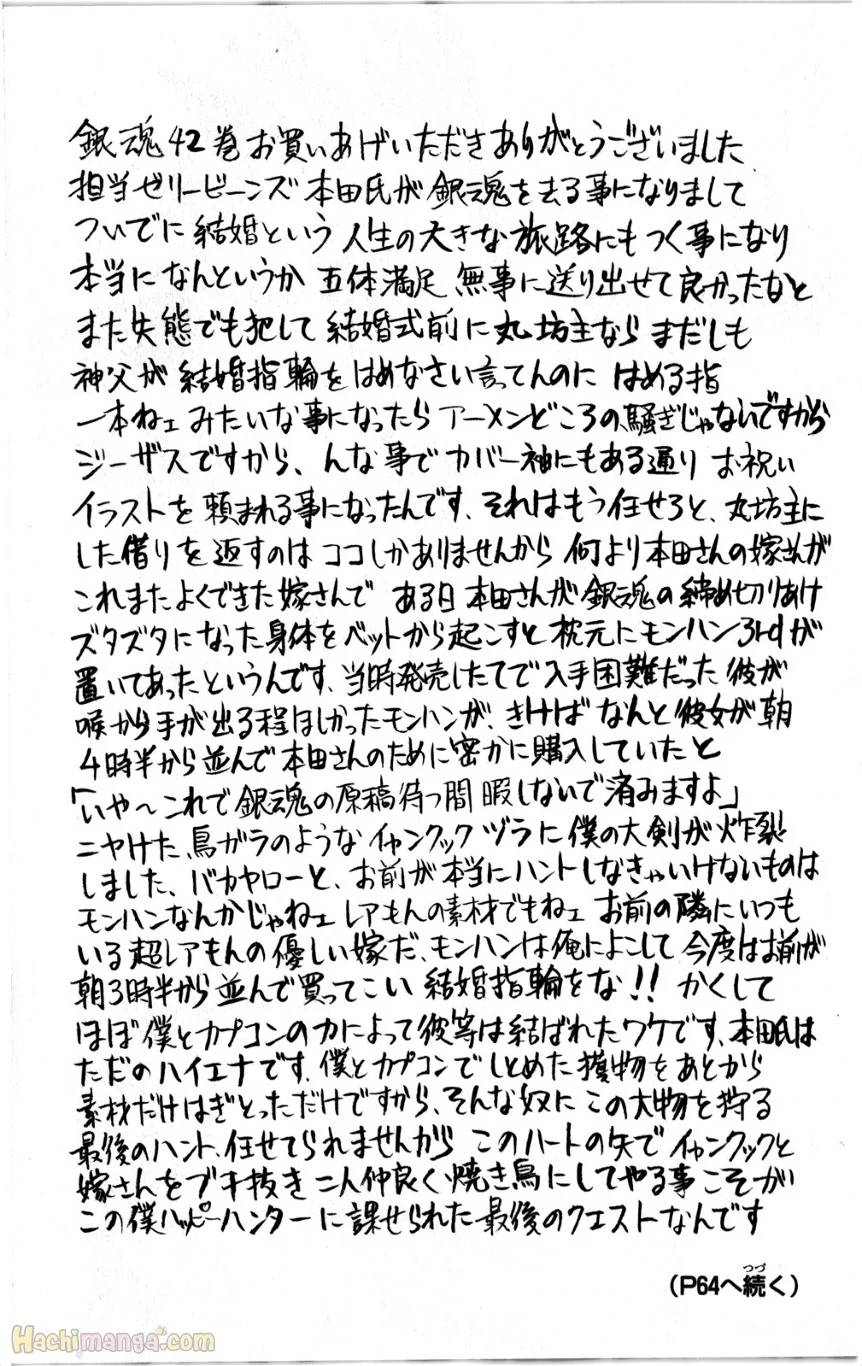 銀魂42巻お買いあげいただきありがとうございました
担当ゼリービーンズ本田氏が銀魂を去る事になりまして
ついでに結婚という人生の大きな旅路にもつく事になり
本当になんというか五体満足無事に送り出せて良かったなと
また失態でも犯して結婚式前に丸坊主ならまだしも
神父が結婚指輪をはめなさい言ってんのにはめる指
一本ねェみたいな事になったらアーメンどころの騒ぎじゃないですから
ジーザスですから、んな事でカバー袖にもある通りお祝い
イラストを頼まれる事になったんです、それはもう任せろと、丸坊主に
した借りを返すのはココしかありませんから何より本田さんの嫁さんが
これまたよくできた嫁さんである日本田さんが銀魂の締め切りあけ
ズタズタになった身体をベットから起こすと枕元にモンハン3rdが
置いてあったというんです、当時発売したてで入手困難だった彼が
喉から手が出る程ほしかったモンハンが、きけばなんと彼女が朝
4時半から並んで本田さんのために密かに購入していたと
「いや~これで銀魂の原稿待つ間暇しないで済みますよ」
ニヤけた鳥ガラのようなイャンクックヅラに僕の大剣が炸裂
しました、バカヤローと、お前が本当にハントしなきゃいけないものは
モンハンなんかじゃねェレアもんの素材でもねェお前の隣にいつも
いる超レアもんの優しい嫁だ、モンハンは俺によこして今度はお前が
朝3時半から並んで買ってこい結婚指輪をな!!かくして
ほぼ僕とカプコンの力によって彼等は結ばれたワケです、本田氏は
ただのハイエナです、僕とカプコンでしとめた獲物をあとから
素材だけはぎとっただけですから、そんな奴にこの大物を狩る
最後のハント、任せてられませんからこのハートの矢でイャンクックと
嫁さんをブチ抜き二人仲良く焼き鳥にしてやる事こそが
この僕ハッピーハンターに課せられた最後のクエストなんです
(P64へ続く)
つづ
Hachimanga.com